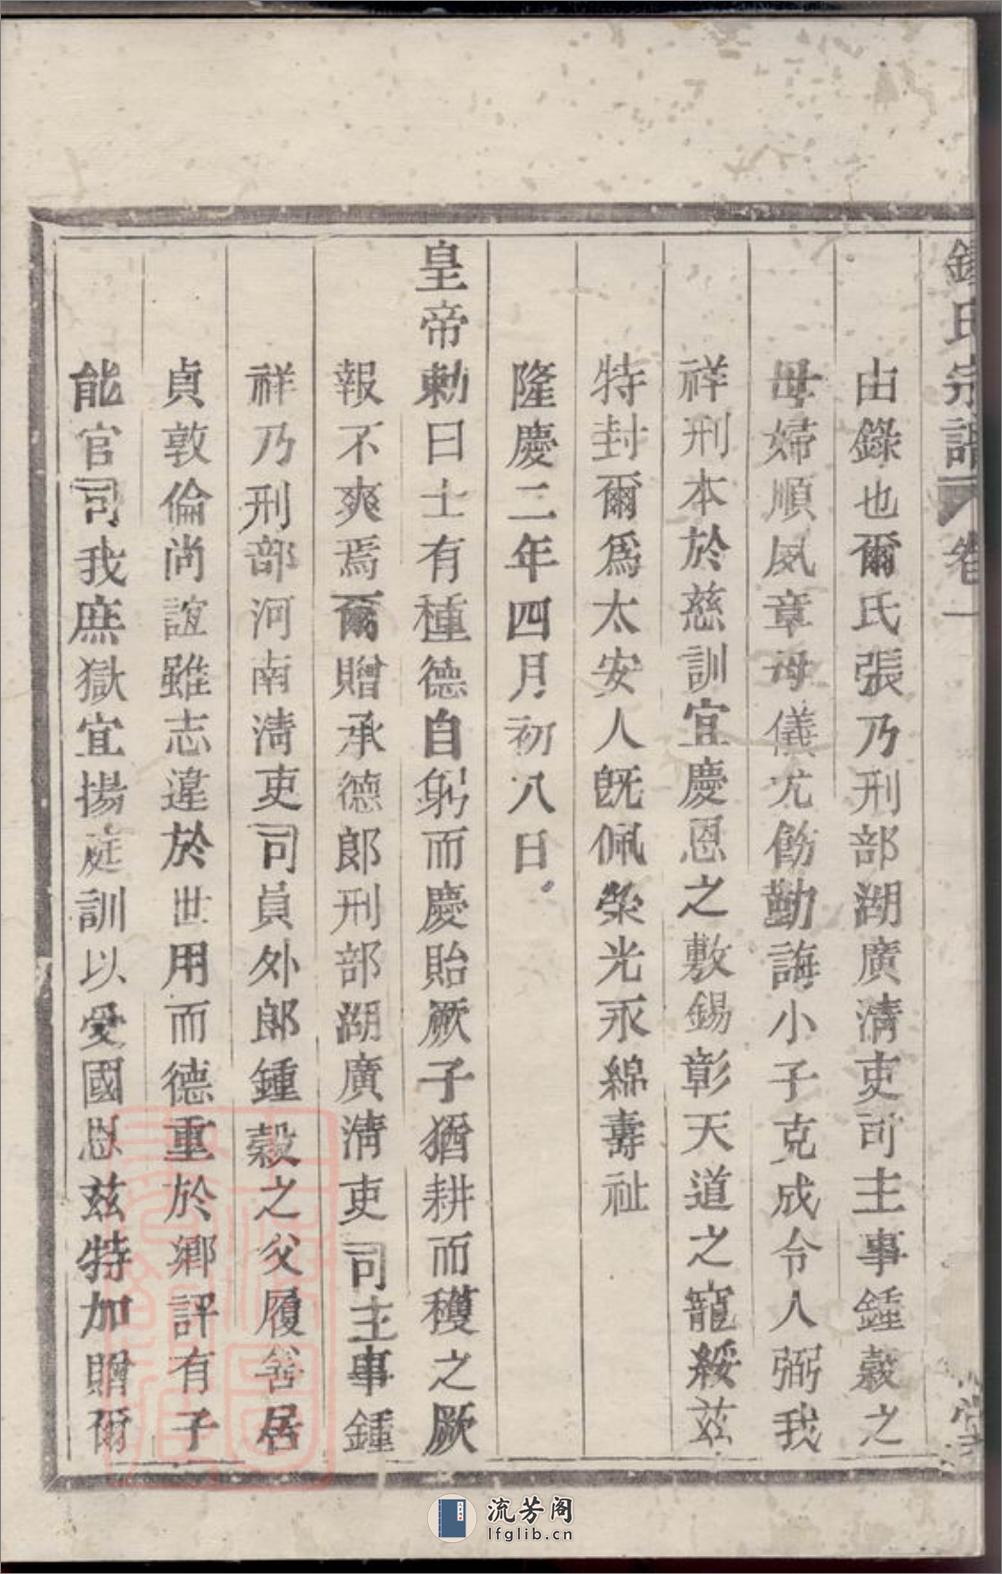 鍾氏宗譜 卷一
由錄也爾氏張乃刑部湖廣清吏司主事鍾穀之
母婦順夙章母儀尤飭勤誨小子克成令人弼我
祥刑本於慈訓宜慶恩之敷錫彰天道之寵綏茲
特封爾爲太安人旣佩榮光永綿壽祉
隆慶二年四月初八日
皇帝勅曰士有種德自躬而慶貽厥子猶耕而穫之厥
報不爽焉爾贈承德郎刑部湖廣清吏司主事鍾
祥乃刑部河南清吏司員外郎鍾穀之父履善居
貞敦倫尚誼雖志違於世用而德重於鄉評有子
能官司我庶獄宜揚庭訓以受國恩茲特加贈爾
流芳阁
lfglib.cn